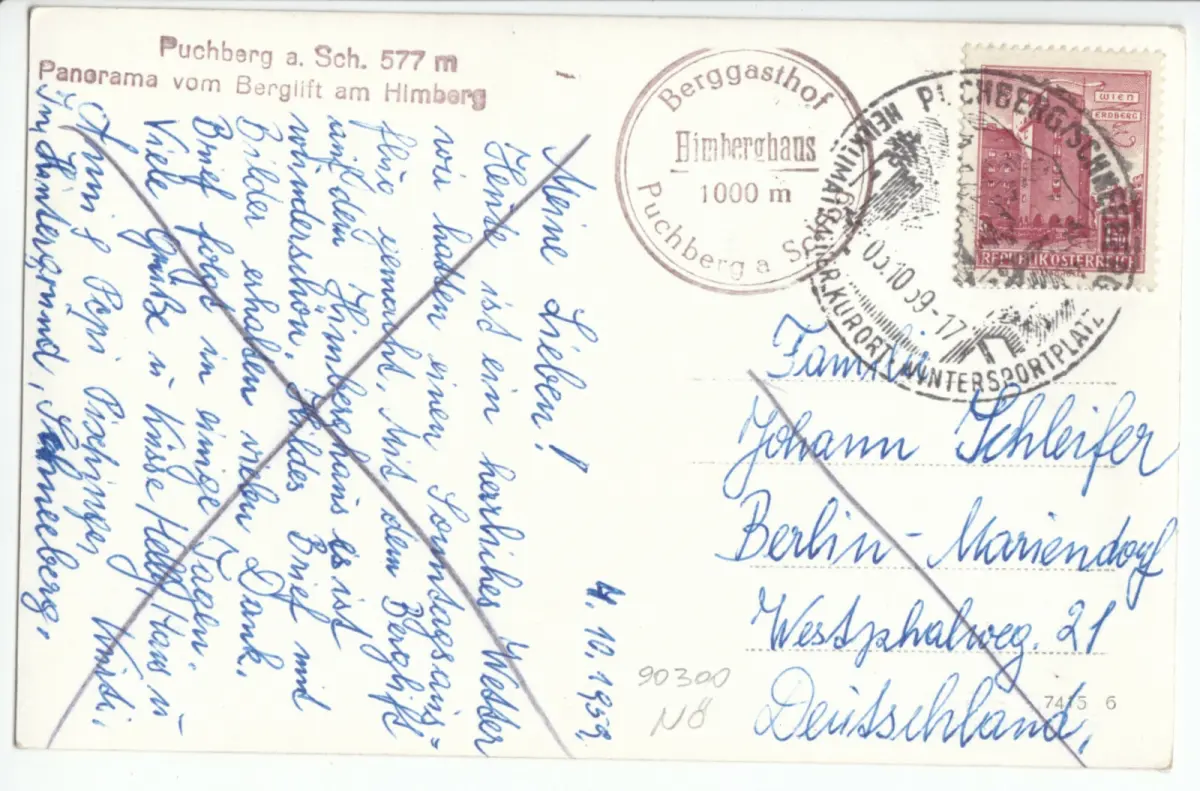 Puchberg a. Sch. 577 m
Panorama vom Berglift am Himberg
Berggasthof
Himberghaus
1000 m
Puchberg a Schbg
WIEN
ERDBERG
REPUBLIK ÖSTERREICH
PUCHBERG/SCHNEEBERG
05.10.59-17
KURORT WINTERSPORTPLATZ
4.10.1959
Meine Lieben!
Heute ist ein herrliches Wetter
wir haben einen Sonntagsaus=
flug gemacht, mit dem Berglift
auf dem Himberghaus es ist
wunderschön. Hildes Brief mit
Bilder erhalten vielen Dank.
Brief folgt in einige Tagen.
Viele Grüße u Küsse Helly, Hans u
Christi.
Anni, Pepi
Im Hintergrund, Schneeberg.
Familie
Johann Schleifer
Berlin-Mariendorf
Westphalweg. 21
Deutschland,
90300
NÖ
7415 6